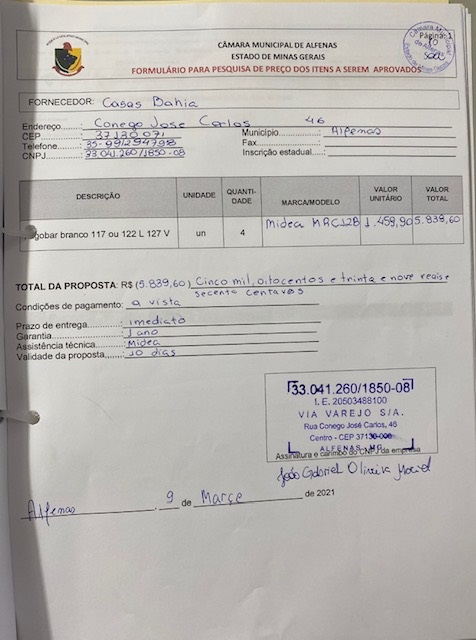 CÂMARA MUNICIPAL DE ALFENAS
ESTADO DE MINAS GERAIS
FORMULÁRIO PARA PESQUISA DE PREÇO DOS ITENS A SEREM APROVADOS
Página: 1
FORNECEDOR: Casas Bahia
Endereço........: Conego Jose Carlos 46
CEP................: 37130 071 Município................: Alfenas
Telefone..........: 35-991294798 Fax..........................:
CNPJ...............: 33.041.260/1850-08 Inscrição estadual....:
DESCRIÇÃO UNIDADE QUANTIDADE MARCA/MODELO VALOR UNITÁRIO VALOR TOTAL
gobar branco 117 ou 122 L 127 V un 4 Midea MRC12B 1.459,90 5.839,60
TOTAL DA PROPOSTA: R$ (5.839,60) Cinco mil, oitocentos e trinta e nove reais e
secenta centavos
Condições de pagamento: a vista
Prazo de entrega............: imediato
Garantia.........................: 1 ano
Assistência técnica.........: Midea
Validade da proposta,......: 10 dias
33.041.260/1850-08
I. E. 20503488100
VIA VAREJO S/A.
Rua Conego José Carlos, 46
Centro - CEP 37130-000
ALFENAS - MG
Assinatura e carimbo do CNPJ da empresa
João Gabriel Oliveira
Alfenas, 9 de Março de 2021